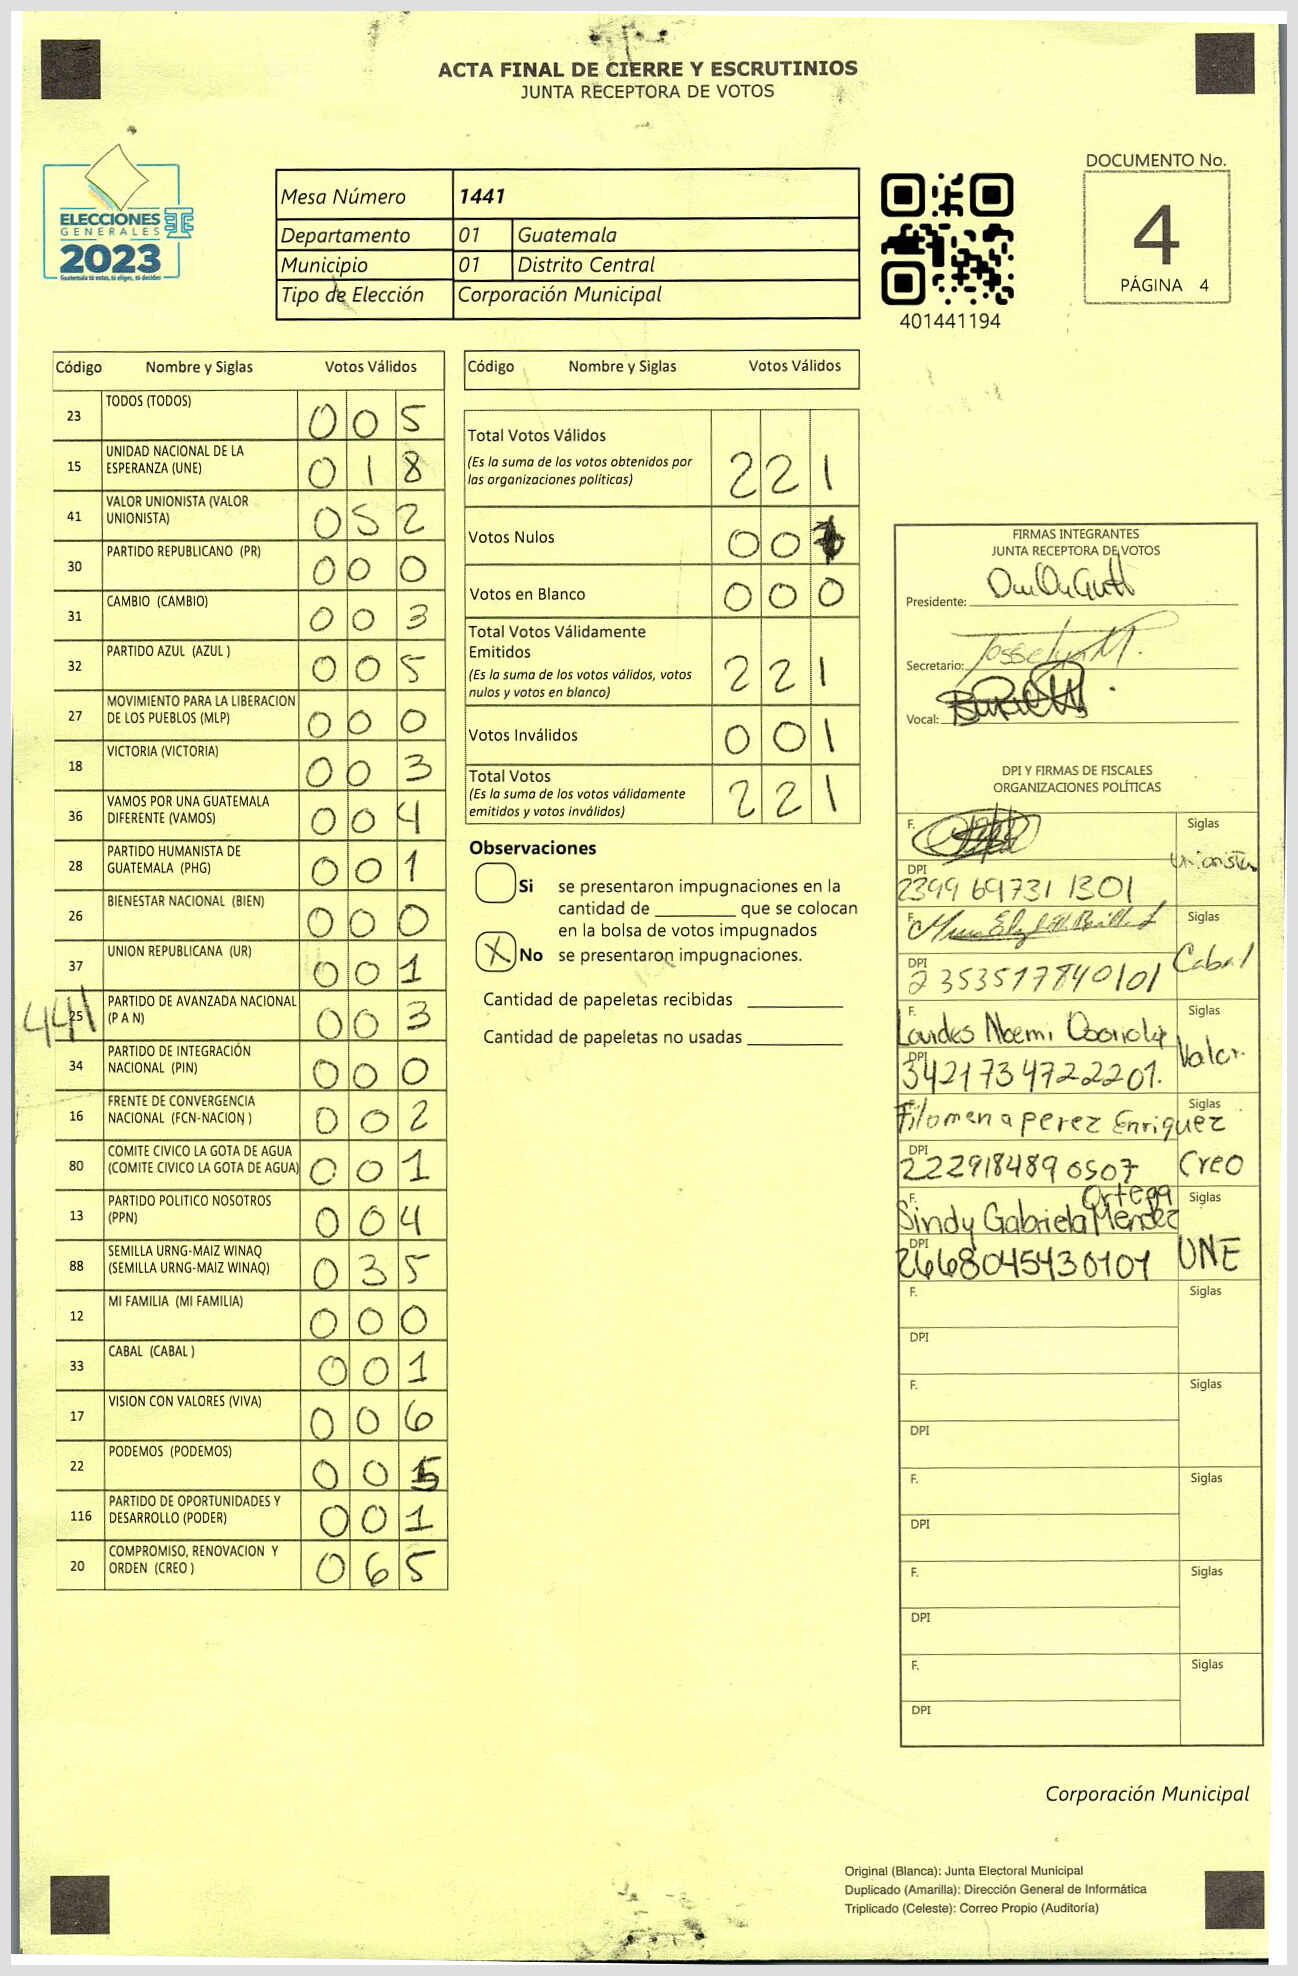 ACTA FINAL DE CIERRE Y ESCRUTINIOS
JUNTA RECEPTORA DE VOTOS
ELECCIONES
GENERALES
2023
Guatemala tú votas, tú eliges, tú decides
Mesa Número 1441
Departamento 01 Guatemala
Municipio 01 Distrito Central
Tipo de Elección Corporación Municipal
401441194
DOCUMENTO No.
4
PÁGINA 4
Código Nombre y Siglas Votos Válidos
23 TODOS (TODOS) 0 0 5
15 UNIDAD NACIONAL DE LA ESPERANZA (UNE) 0 1 8
41 VALOR UNIONISTA (VALOR UNIONISTA) 0 5 2
30 PARTIDO REPUBLICANO (PR) 0 0 0
31 CAMBIO (CAMBIO) 0 0 3
32 PARTIDO AZUL (AZUL ) 0 0 5
27 MOVIMIENTO PARA LA LIBERACION DE LOS PUEBLOS (MLP) 0 0 0
18 VICTORIA (VICTORIA) 0 0 3
36 VAMOS POR UNA GUATEMALA DIFERENTE (VAMOS) 0 0 4
28 PARTIDO HUMANISTA DE GUATEMALA (PHG) 0 0 1
26 BIENESTAR NACIONAL (BIEN) 0 0 0
37 UNION REPUBLICANA (UR) 0 0 1
441
25 PARTIDO DE AVANZADA NACIONAL (P A N) 0 0 3
34 PARTIDO DE INTEGRACIÓN NACIONAL (PIN) 0 0 0
16 FRENTE DE CONVERGENCIA NACIONAL (FCN-NACION ) 0 0 2
80 COMITE CIVICO LA GOTA DE AGUA (COMITE CIVICO LA GOTA DE AGUA) 0 0 1
13 PARTIDO POLITICO NOSOTROS (PPN) 0 0 4
88 SEMILLA URNG-MAIZ WINAQ (SEMILLA URNG-MAIZ WINAQ) 0 3 5
12 MI FAMILIA (MI FAMILIA) 0 0 0
33 CABAL (CABAL ) 0 0 1
17 VISION CON VALORES (VIVA) 0 0 6
22 PODEMOS (PODEMOS) 0 0 5
116 PARTIDO DE OPORTUNIDADES Y DESARROLLO (PODER) 0 0 1
20 COMPROMISO, RENOVACION Y ORDEN (CREO ) 0 6 5
Código Nombre y Siglas Votos Válidos
Total Votos Válidos 2 2 1
(Es la suma de los votos obtenidos por
las organizaciones políticas)
Votos Nulos 0 0
Votos en Blanco 0 0 0
Total Votos Válidamente
Emitidos 2 2 1
(Es la suma de los votos válidos, votos
nulos y votos en blanco)
Votos Inválidos 0 0 1
Total Votos 2 2 1
(Es la suma de los votos válidamente
emitidos y votos inválidos)
Observaciones
Si se presentaron impugnaciones en la
cantidad de ________ que se colocan
en la bolsa de votos impugnados
X No se presentaron impugnaciones.
Cantidad de papeletas recibidas
Cantidad de papeletas no usadas
FIRMAS INTEGRANTES
JUNTA RECEPTORA DE VOTOS
Presidente:
Secretario: Josselyn M.
Vocal:
DPI Y FIRMAS DE FISCALES
ORGANIZACIONES POLÍTICAS
F. Siglas
Unionista
DPI 2399 69731 1301
F. Siglas
Cabal
DPI 2353517840101
F. Lourdes Noemi Siglas
Valor.
DPI 3421734722201.
Filomena perez Enriquez Siglas
DPI 222918489 0507 Creo
F. Sindy Gabriela Méndez Ortega Siglas
DPI 2668045430101 UNE
F. Siglas
DPI
F. Siglas
DPI
F. Siglas
DPI
F. Siglas
DPI
F. Siglas
DPI
Corporación Municipal
Original (Blanca): Junta Electoral Municipal
Duplicado (Amarilla): Dirección General de Informática
Triplicado (Celeste): Correo Propio (Auditoría)